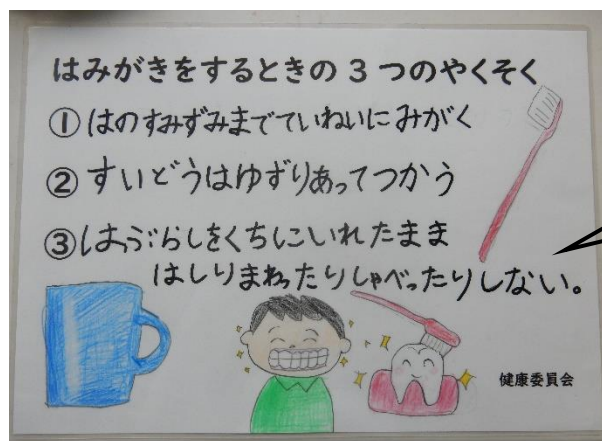 はみがきをするときの３つのやくそく
①はのすみずみまでていねいにみがく
②すいどうはゆずりあってつかう
③はぶらしをくちにいれたまま
はしりまわったりしゃべったりしない。
健康委員会